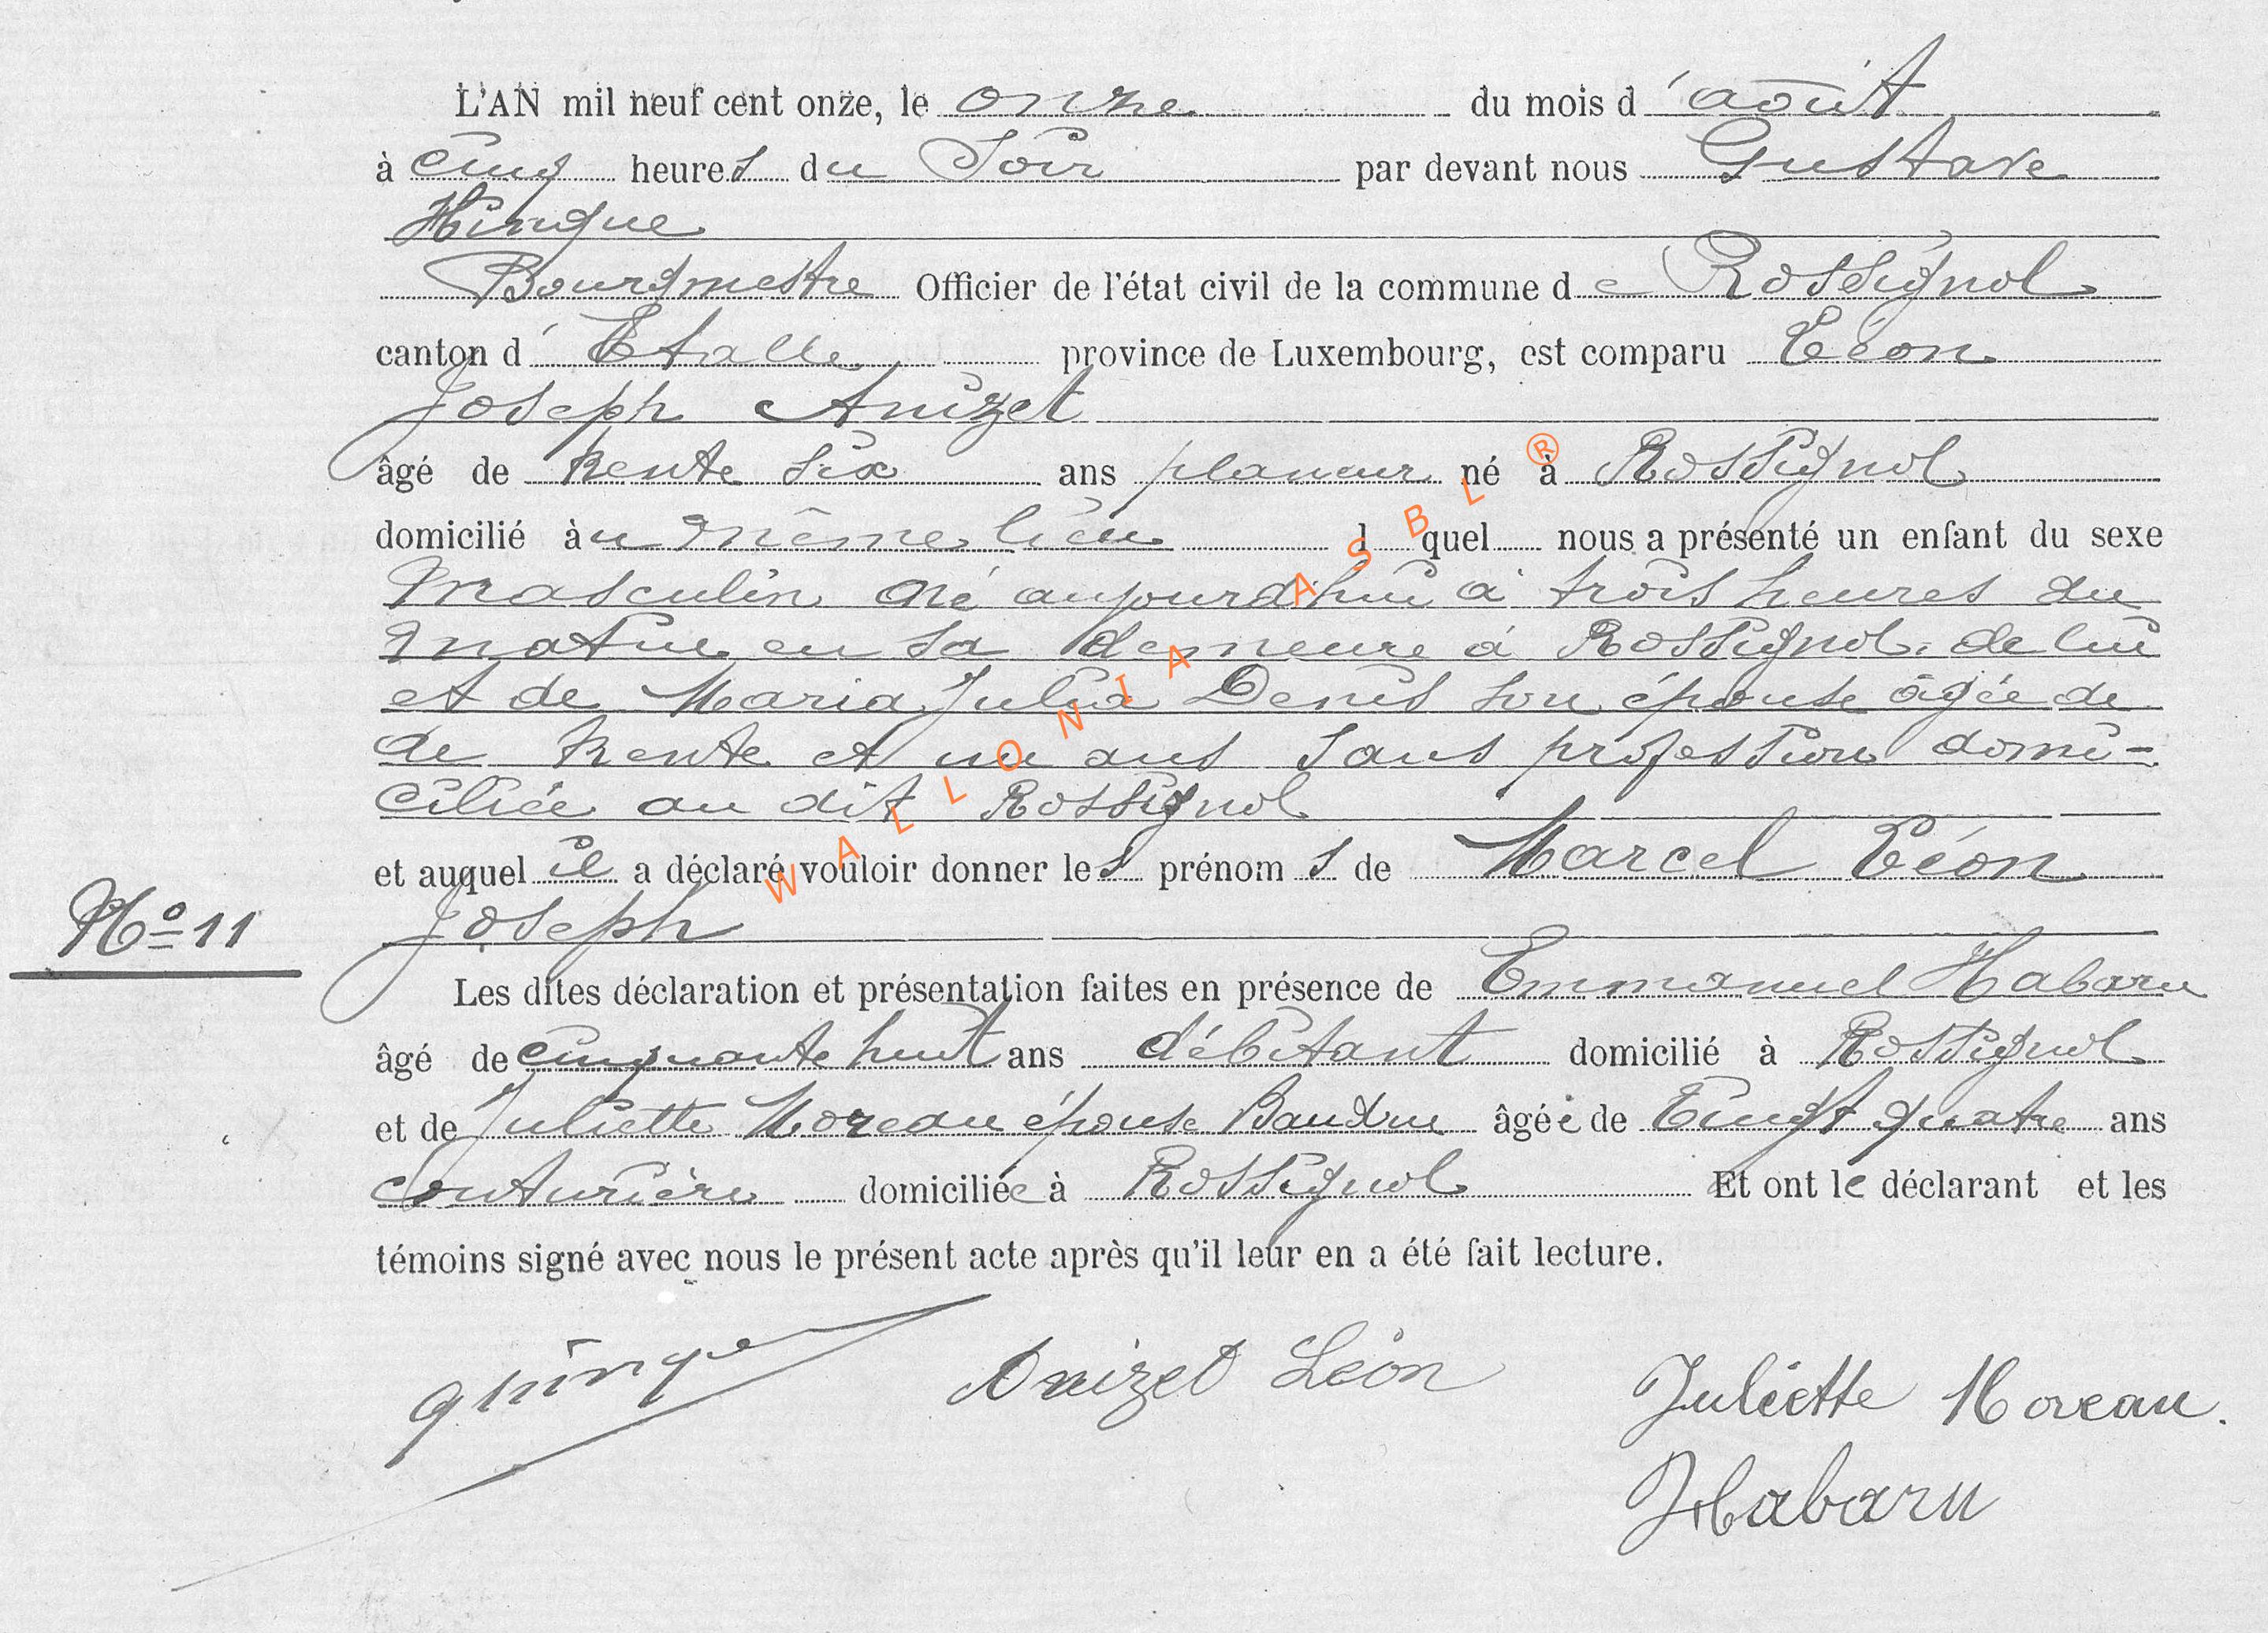 L'AN mil neuf cent onze, le onze du mois d'août
à cinq heures du Soir par devant nous Gustave
Hinque
Bourgmestre Officier de l'état civil de la commune de Rossignol
canton d'Etalle province de Luxembourg, est comparu Léon
Joseph Anizet
âgé de trente six ans planeur né à Rossignol
domicilié au même lieu l quel nous a présenté un enfant du sexe
masculin né aujourd'hui à trois heures du
matin en sa demeure à Rossignol, de lui
et de Maria Julia Denis son épouse âgée de
de trente et un ans sans profession domi-
ciliée au dit Rossignol
et auquel il a déclaré vouloir donner les prénoms de Marcel Léon
Nº 11
Joseph
Les dites déclaration et présentation faites en présence de Emmanuel Habaru
âgé de cinquante huit ans débitant domicilié à Rossignol
et de Juliette Moreau épouse âgée de vingt quatre ans
couturière domiciliée à Rossignol Et ont le déclarant et les
témoins signé avec nous le présent acte après qu'il leur en a été fait lecture.
Anizet Léon
Juliette Moreau.
Habaru
WALLONIA ASBL ®